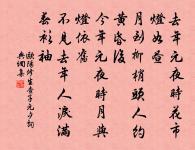 去年元夜時花市
燈如晝
月到柳梢頭人約
黃昏後
今年元夜時月與
燈依舊
不見去年人淚滿
春衫袖
歐陽修生查子元夕詞